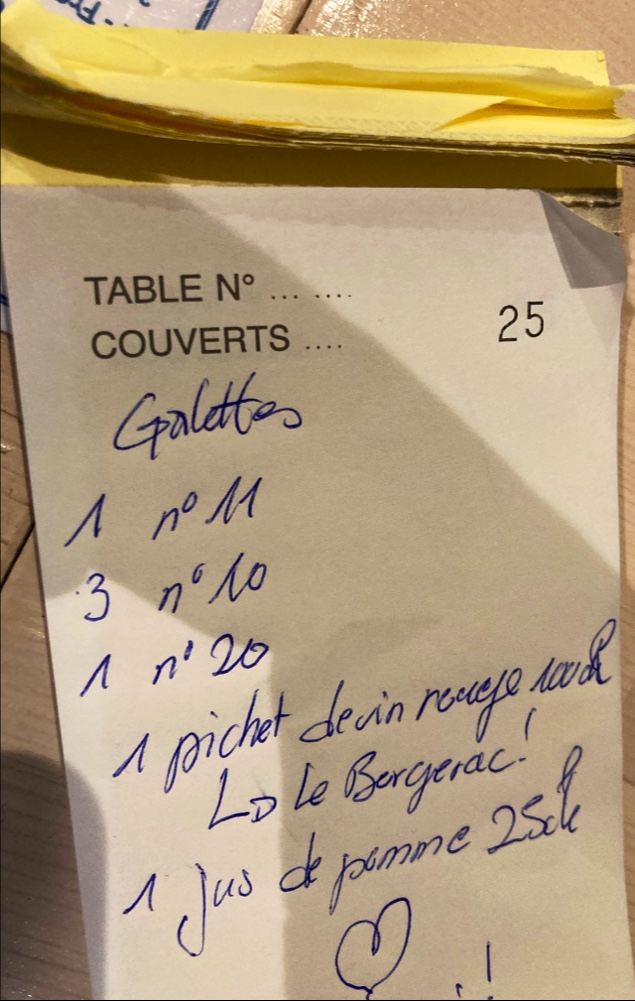 TABLE N° ... ....
COUVERTS ....
25
Galettes
1 n° 11
3 n° 10
1 n° 20
1 pichet de vin rouge 100cl
↳ le Bergerac!
1 jus de pomme 25cl
♡ !